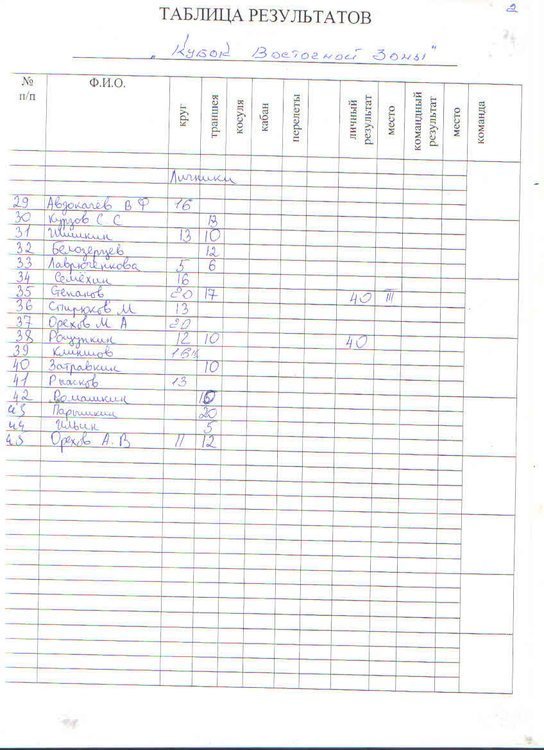 2
ТАБЛИЦА РЕЗУЛЬТАТОВ
„Кубок Восточной Зоны"
№ п/п Ф.И.О. круг траншея косуля кабан перелеты личный результат место командный результат место команда
Личники
29 Авдокачев В Ф 16
30 Курзов С С 13
31 Шишкин 13 10
32 Белозерцев 12
33 Лаврюченкова 5 6
34 Семёхин 16
35 Степанов 20 17 40 III
36 М 13
37 Орехов М А 20
38 12 10 40
39 Климшов
40 Затравкин 10
41 13
42 Ромашкин
43 Парышкин 20
44 Ильин 5
45 Орехов А. В 11 12